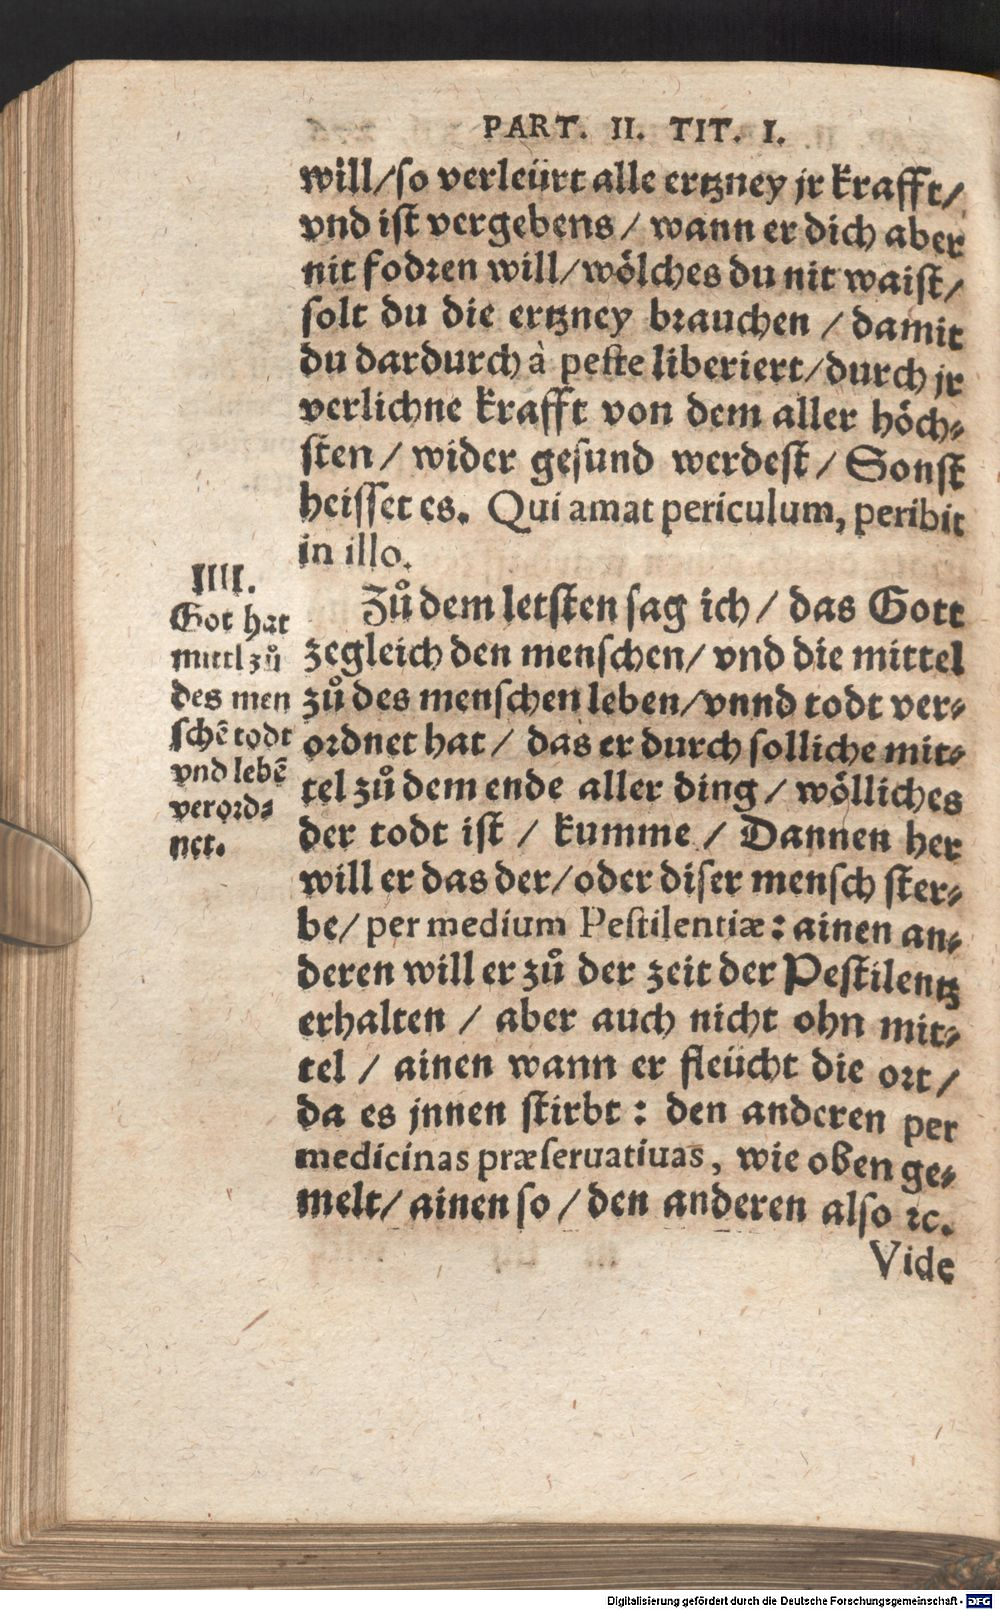 PART. II. TIT. I.
will/so verleürt alle ertzney jr krafft/
vnd ist vergebens / wann er dich aber
nit fodren will/wölches du nit waist/
solt du die ertzney brauchen / damit
du dardurch à peste liberiert/durch jr
verlichne krafft von dem aller höch⸗
sten / wider gesund werdest / Sonst
heisset es. Qui amat periculum, peribit
in illo.
IIII.
Got hat
mittl zů
des men
schē todt
vnd lebē
verord⸗
net.
Zů dem letsten sag ich / das Gott
zegleich den menschen/ vnd die mittel
zů des menschen leben/vnnd todt ver⸗
ordnet hat / das er durch solliche mit⸗
tel zů dem ende aller ding / wölliches
der todt ist / kumme / Dannen her
will er das der/oder diser mensch ster⸗
be/ per medium Pestilentiæ: ainen an⸗
deren will er zů der zeit der Pestilentz
erhalten / aber auch nicht ohn mit⸗
tel / ainen wann er fleücht die ort /
da es jnnen stirbt : den anderen per
medicinas præseruatiuas, wie oben ge⸗
melt/ ainen so / den anderen also ꝛc.
Vide
Digitalisierung gefördert durch die Deutsche Forschungsgemeinschaft - DFG